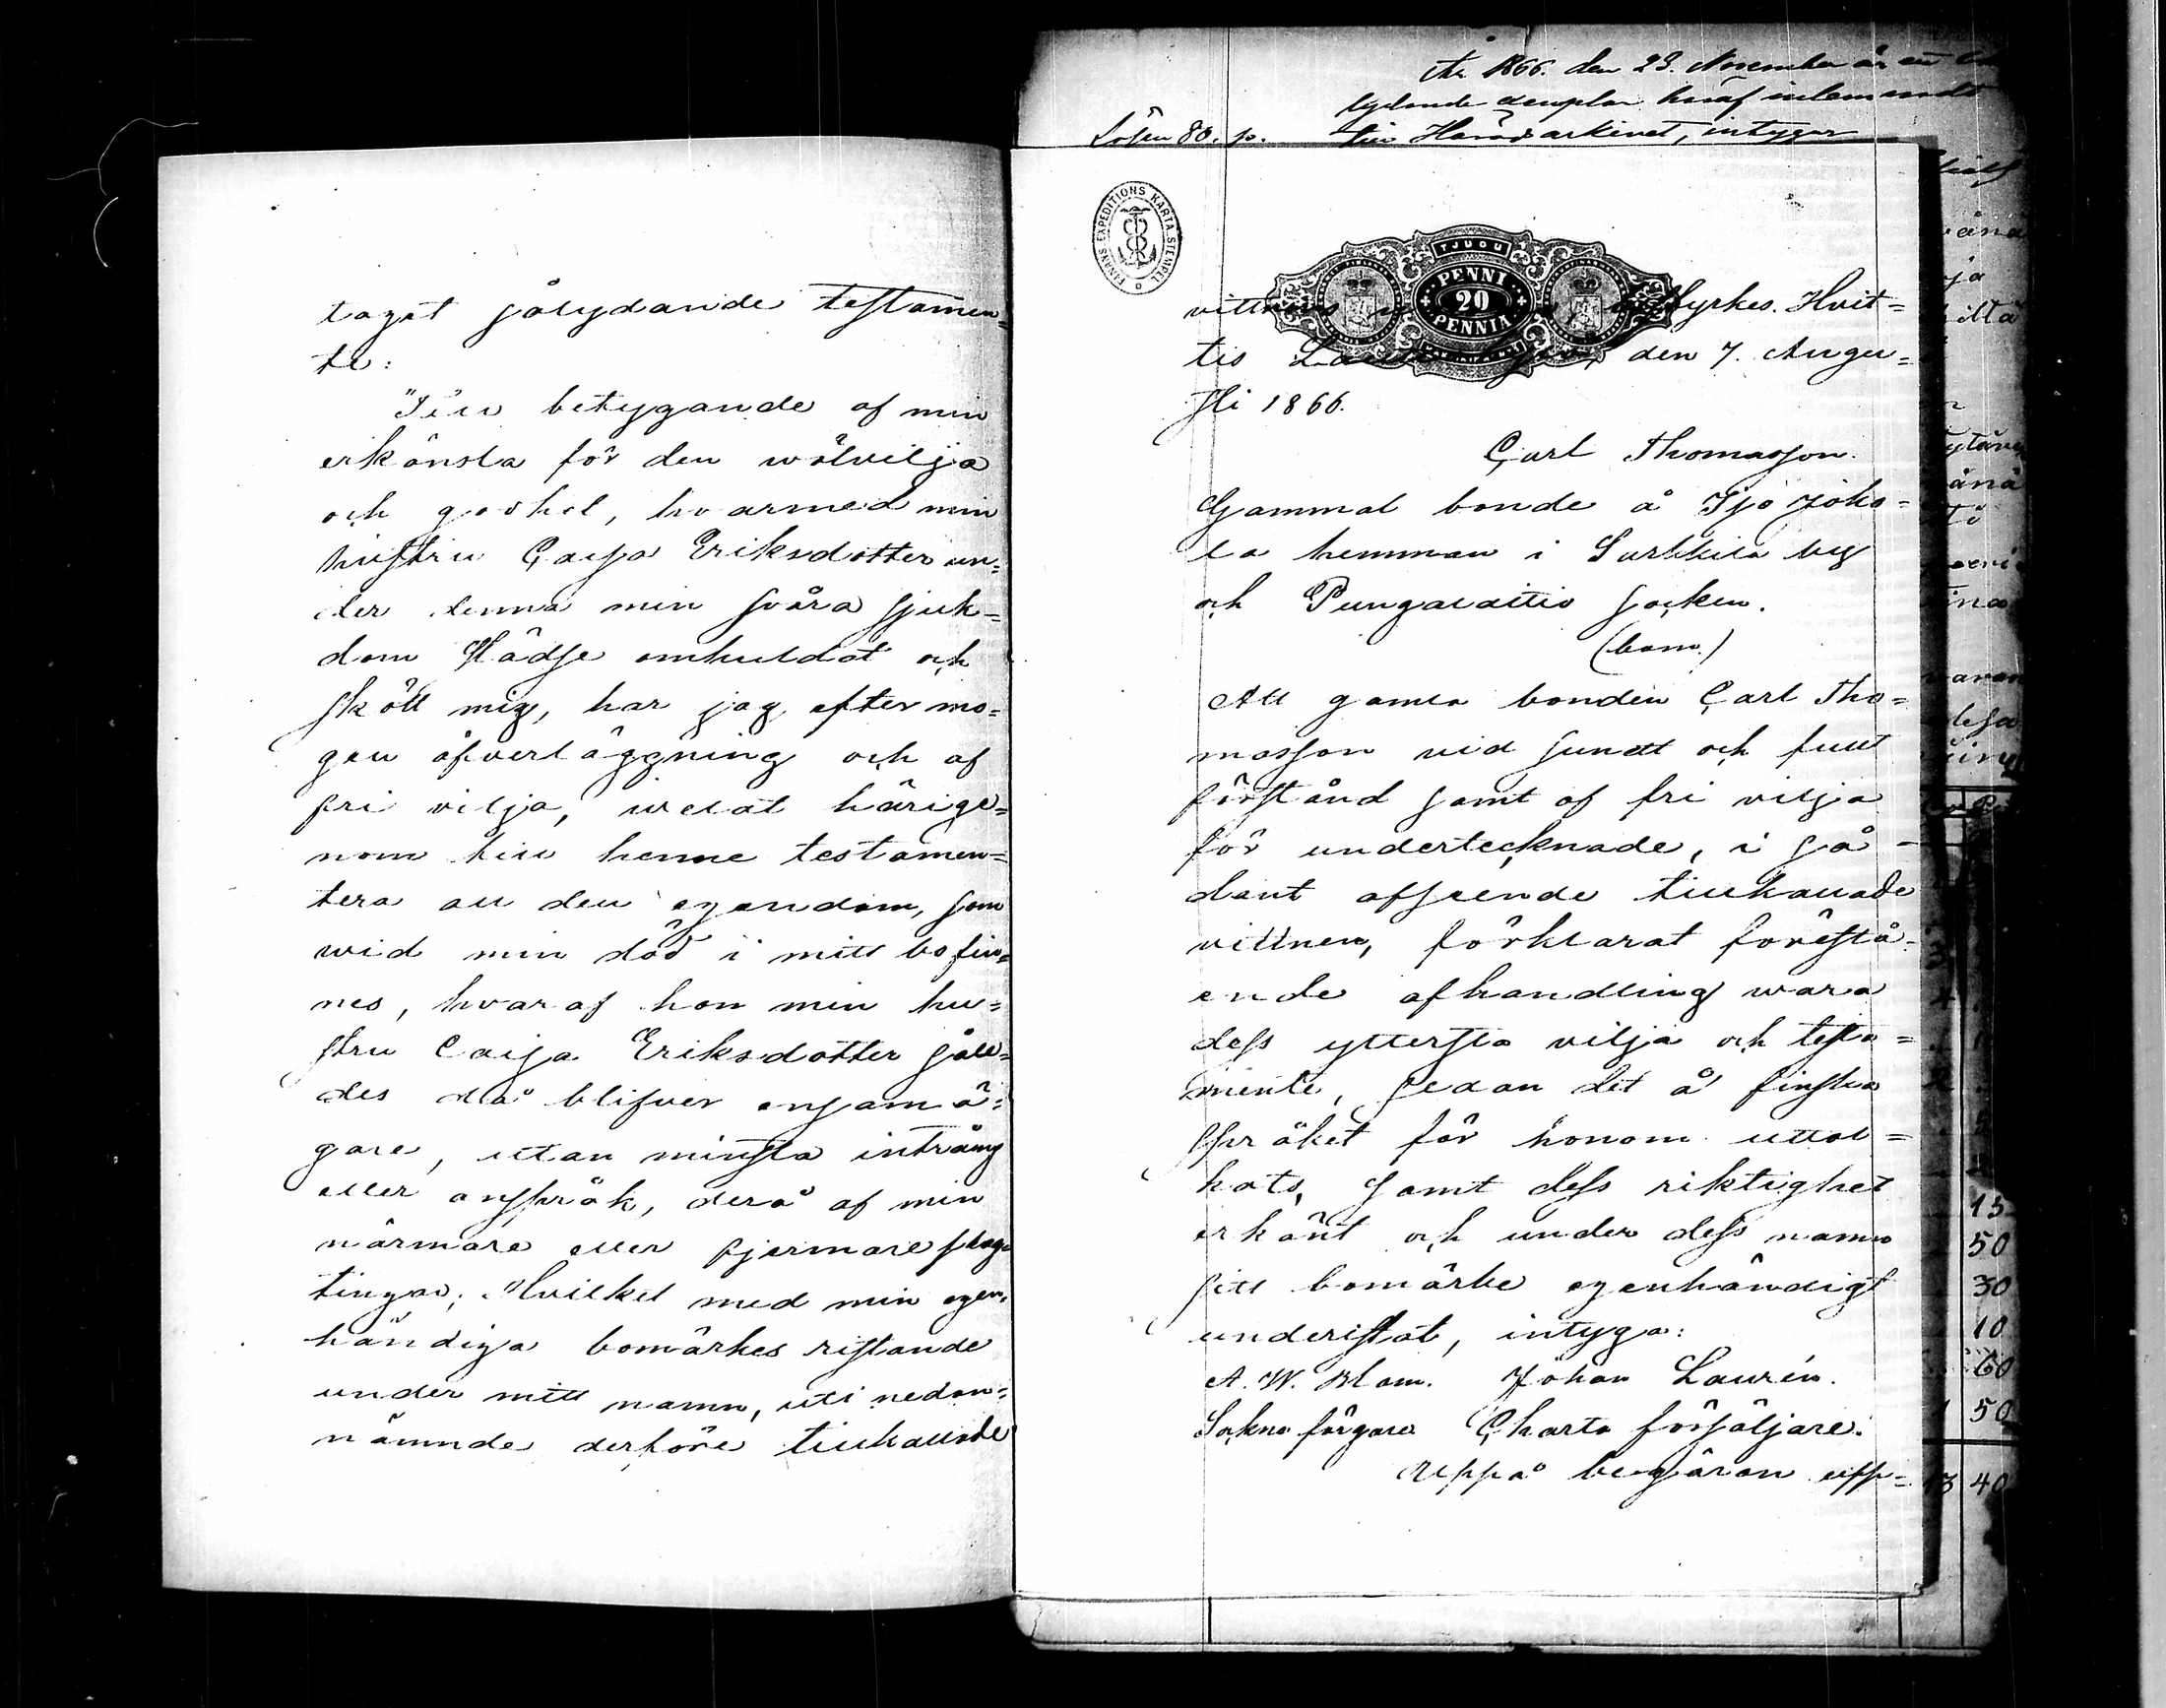 taget sålydande testamen=
te:
"Till betygande af min
erkänsla för den wälvilja
och godhet, hvarmed min
hustru Caisa Eriksdotter un=
der denna min svåra sjuk=
dom städse omhuldat och
skött mig, har jag efter mo=
gen öfverläggning och af
fri vilja, welat härige=
nom till henne testamen=
tera all den egendom, som
wid min död i mitt bo fin=
nes, hvaraf hon min hu=
stru Caisa Eriksdotter såle=
des då blifver ensam ä=
gare, utan minsta intrång
eller anspråk, derå af min
närmare eller fjermare slägtingar; Hvilket med min egen=
händiga bomärkes ristande
under mitt namn, uti nedan=
nämnde derföre tillkallade
År 1866. den 23. November är ett
lydande exemplar häraf inlemnadt
Lösen 80. p. till Häradsarkivet, intygar
FINANS EXPEDITIONS KARTA STEMPEL
TJUGU
PENNI
20
PENNIÄ
vittnens styrkes. Hvit=
tis den 7. Augu=
sti 1866.
Carl Thomasson.
Gammal bonde å Sjö Jöko=
la hemman i Surkkila by
och Pungalaitio socken.
(bom.)
Att gamla bonden Carl Tho=
masson vid sundt och fullt
förstånd samt af fri vilja
för undertecknade, i så=
dant afseende tillkallade
vittnen, förklarat förestå=
ende afhandling wara
dess yttersta vilja och testa=
mente, sedan det å finska
språket för honom uttol=
kats, samt dess riktighet
erkänt och under dess namn
sitt bomärke egenhändigt
underistat, intyga:
A. W. Blom. Johan Laurén.
Sockne färgare Charta försäljare.
Uppå begäran upp=
15
50
30
10
60
50
13 40